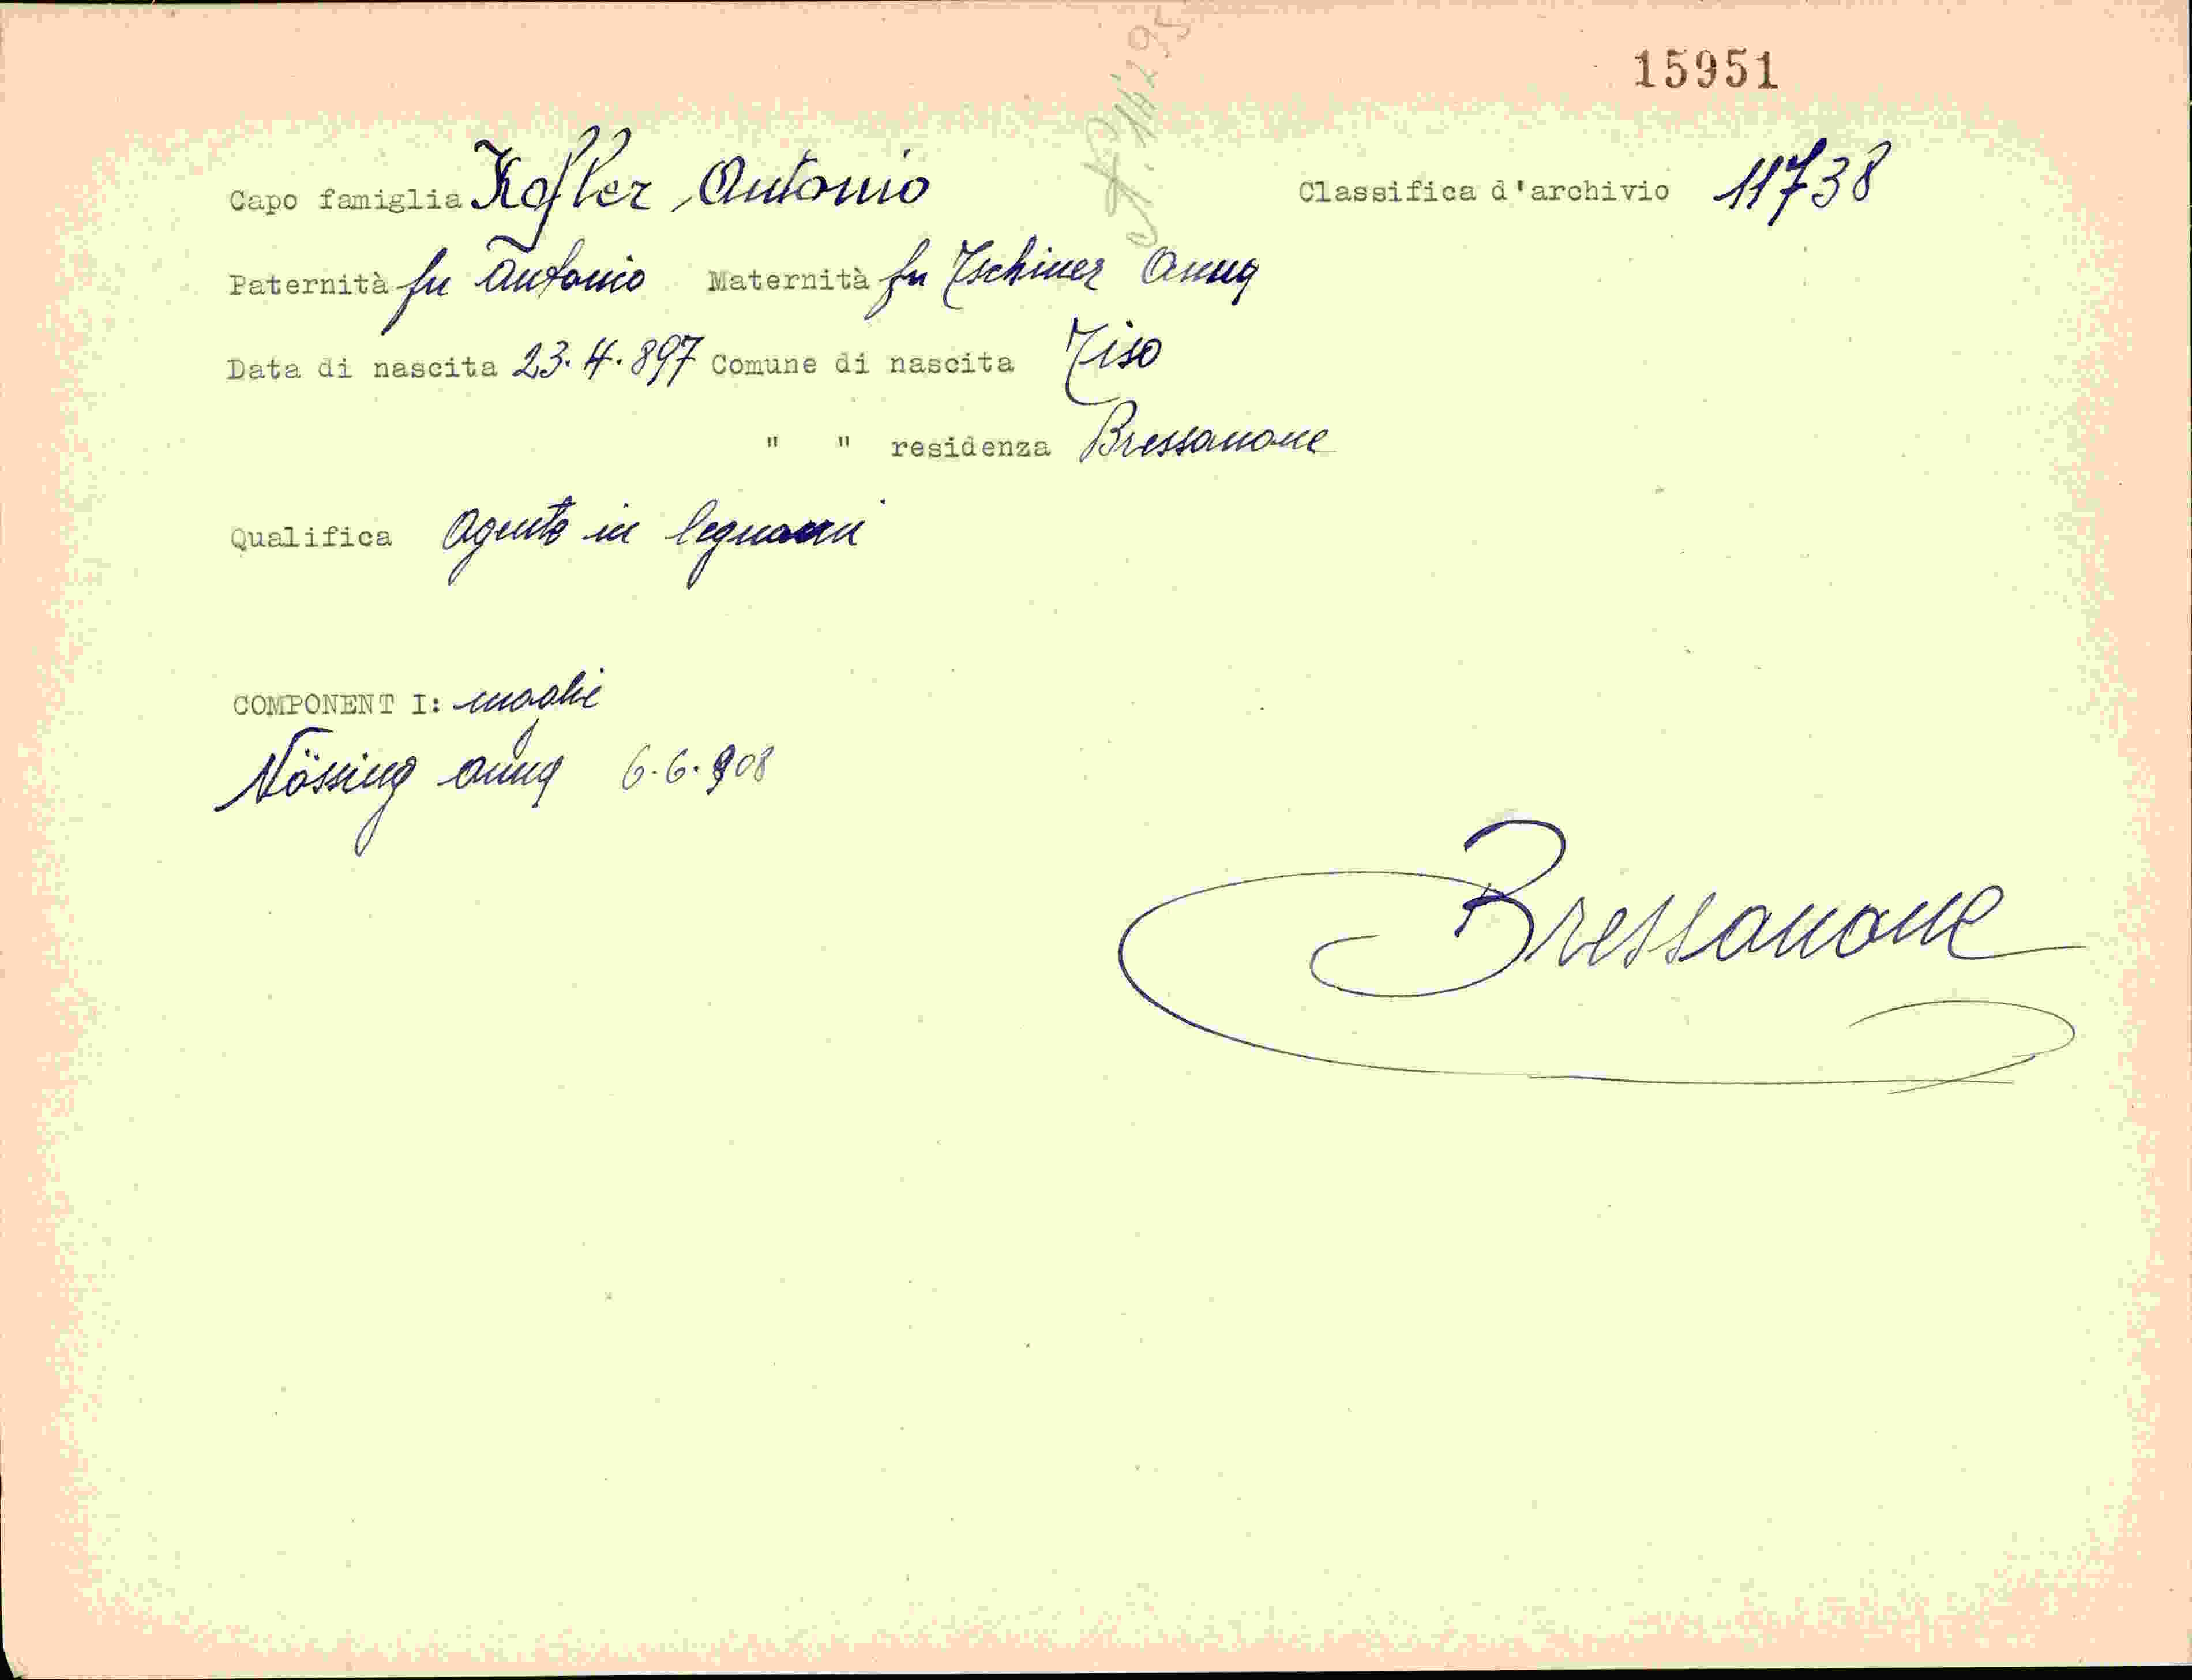 15951
Capo famiglia Kofler, Antonio Classifica d'archivio 11738
Paternità fu Antonio Maternità fu Tschiner Anna
Data di nascita 23.4.897 Comune di nascita Tiso
" " residenza Bressanone
Qualifica Agente in legnami
COMPONENT I: moglie
Nössing Anna 6.6.908
Bressanone